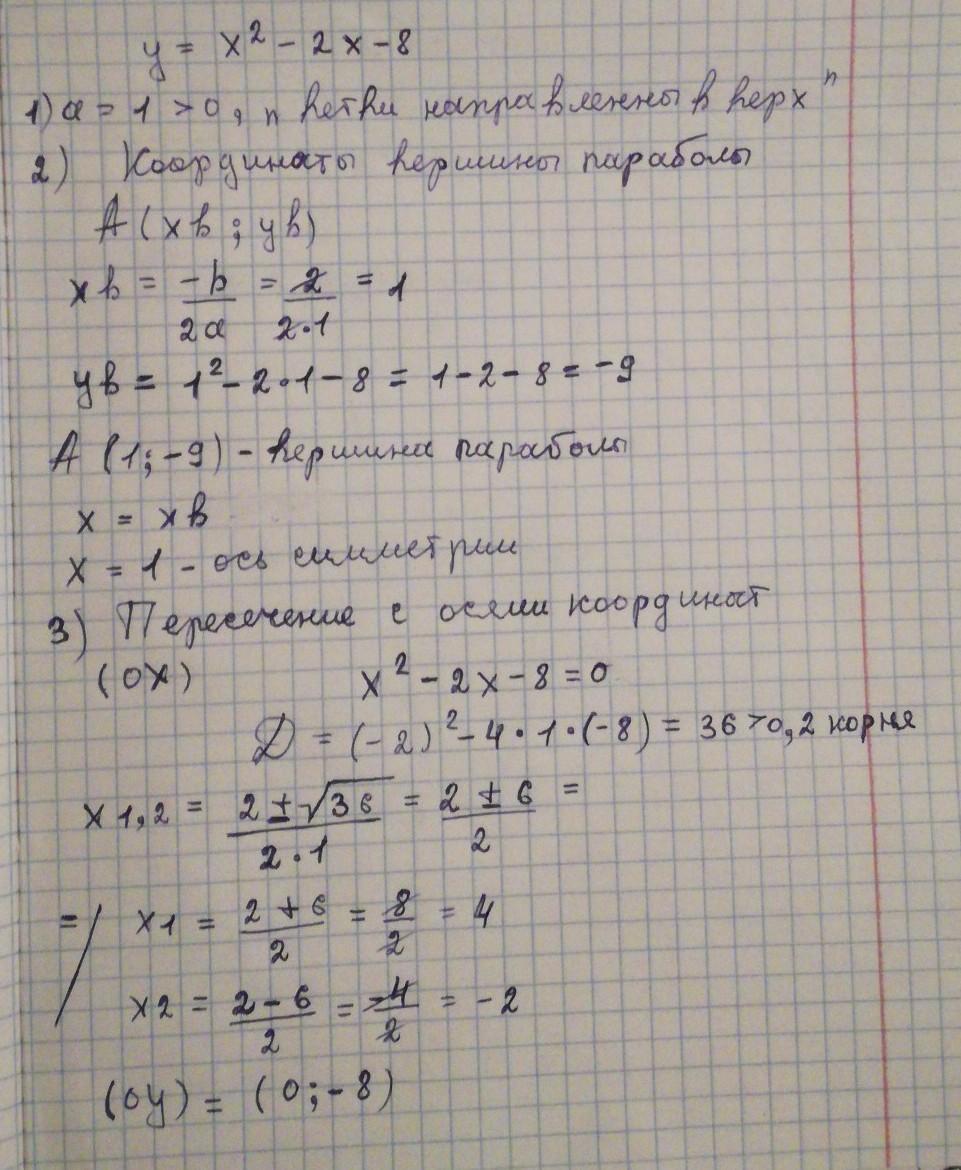 y = x² - 2x - 8
1) a = 1 > 0, " ветви направленны в верх "
2) Координаты вершины параболы
A (xв ; yв)
xв = -b/2a = 2/2·1 = 1
yв = 1² - 2·1 - 8 = 1 - 2 - 8 = -9
A (1; -9) - вершина параболы
x = xв
x = 1 - ось симметрии
3) Пересечение с осями координат
(OX) x² - 2x - 8 = 0
D = (-2)² - 4·1·(-8) = 36 > 0, 2 корня
x1,2 = 2 ± √36/2·1 = 2 ± 6/2 =
= / x1 = 2 + 6/2 = 8/2 = 4
x2 = 2 - 6/2 = -4/2 = -2
(oy) = (0; -8)